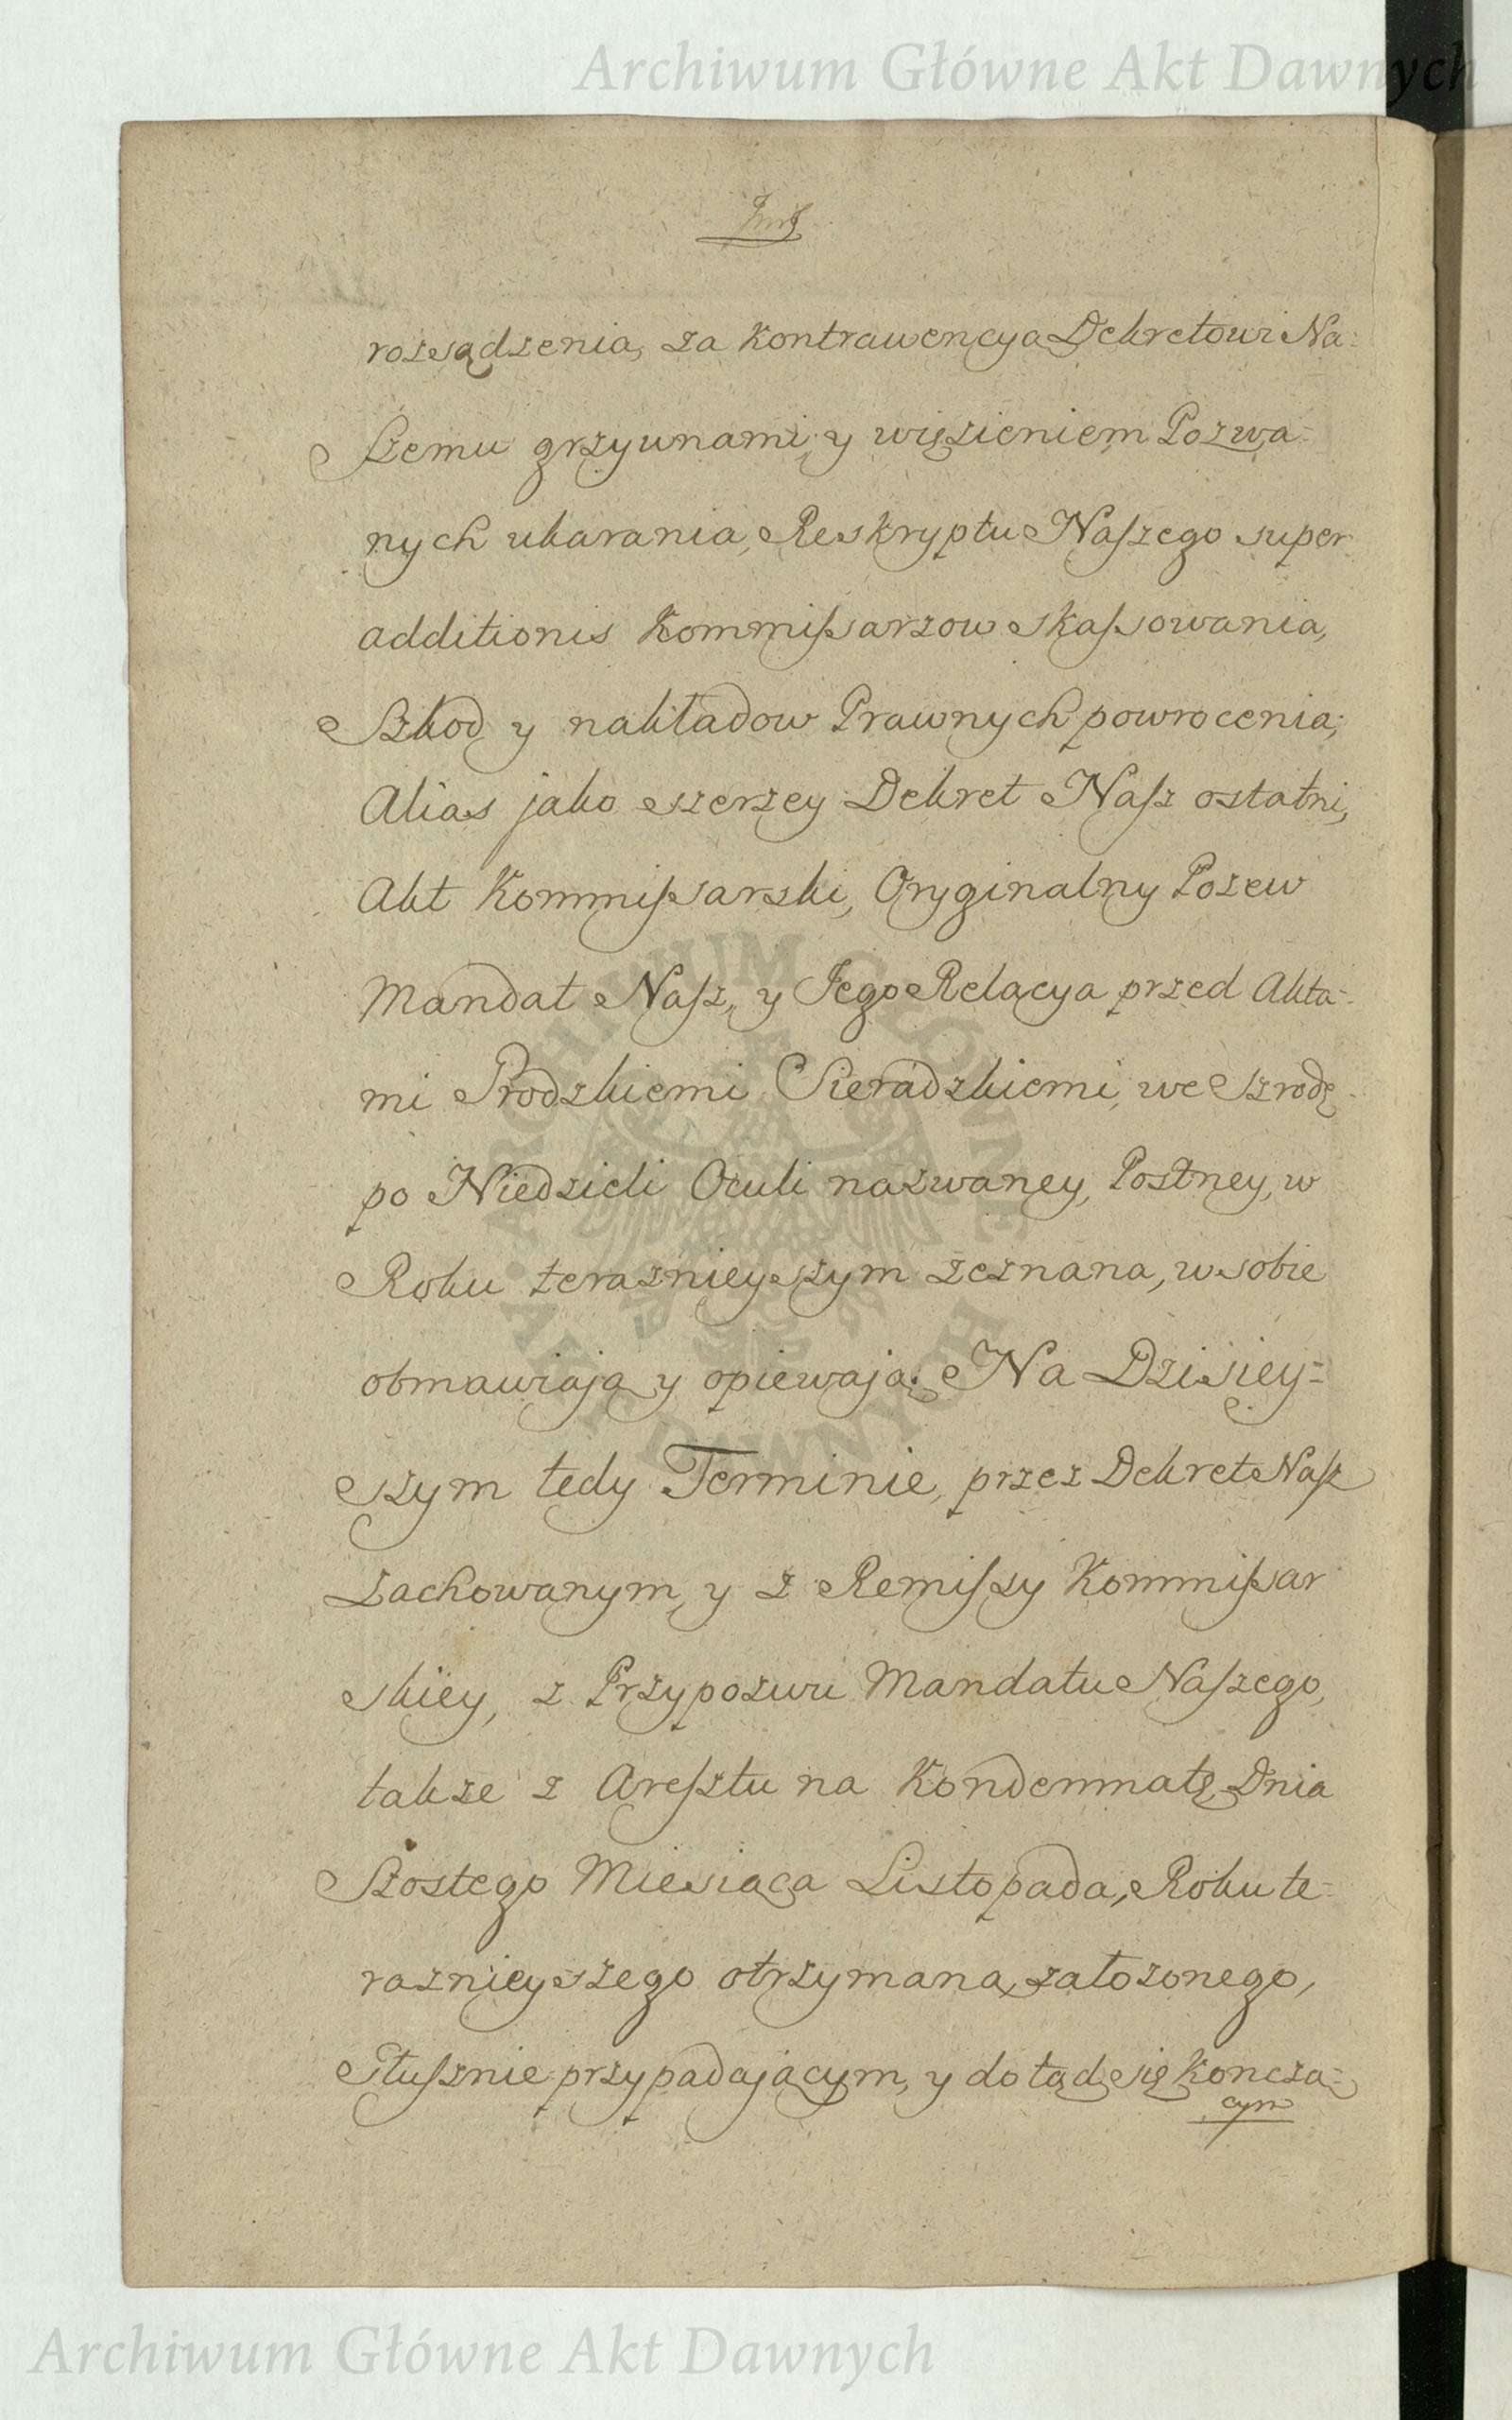 Archiwum Główne Akt Dawnych
rozsądzenia, za Kontrawencya Dekretowi Na=
szemu grzywnami y więzieniem Pozwa=
nych ukarania, Reskryptu Naszego super
additionis Kommissarzow skassowania,
Szkod y nakładow Prawnych powrocenia;
Alias jako szerzey Dekret Nasz ostatni,
Akt Kommissarski, Oryginalny Pozew
Mandat Nasz, y Jego Relacya przed Akta=
mi Grodzkiemi Sieradzkiemi, we Szrodę
po Niedzieli Oculi nazwaney, Postney, w
Roku teraznieyszym zeznana, w sobie
obmawiają y opiewają: Na Dzisiey=
szym tedy Terminie, przez Dekret Nasz
zachowanym, y z Remissy Kommissar
skiey, z Przypozwu Mandatu Naszego,
takze z Aresztu na Kondemnatę Dnia
Szostego Miesiąca Listopada, Roku te=
raznieyszego otrzymaną, załozonego,
Słusznie przypadającym, y dotąd się konczą=
cym
ARCHIWUM GŁÓWNE
AKT DAWNYCH
Archiwum Główne Akt Dawnych